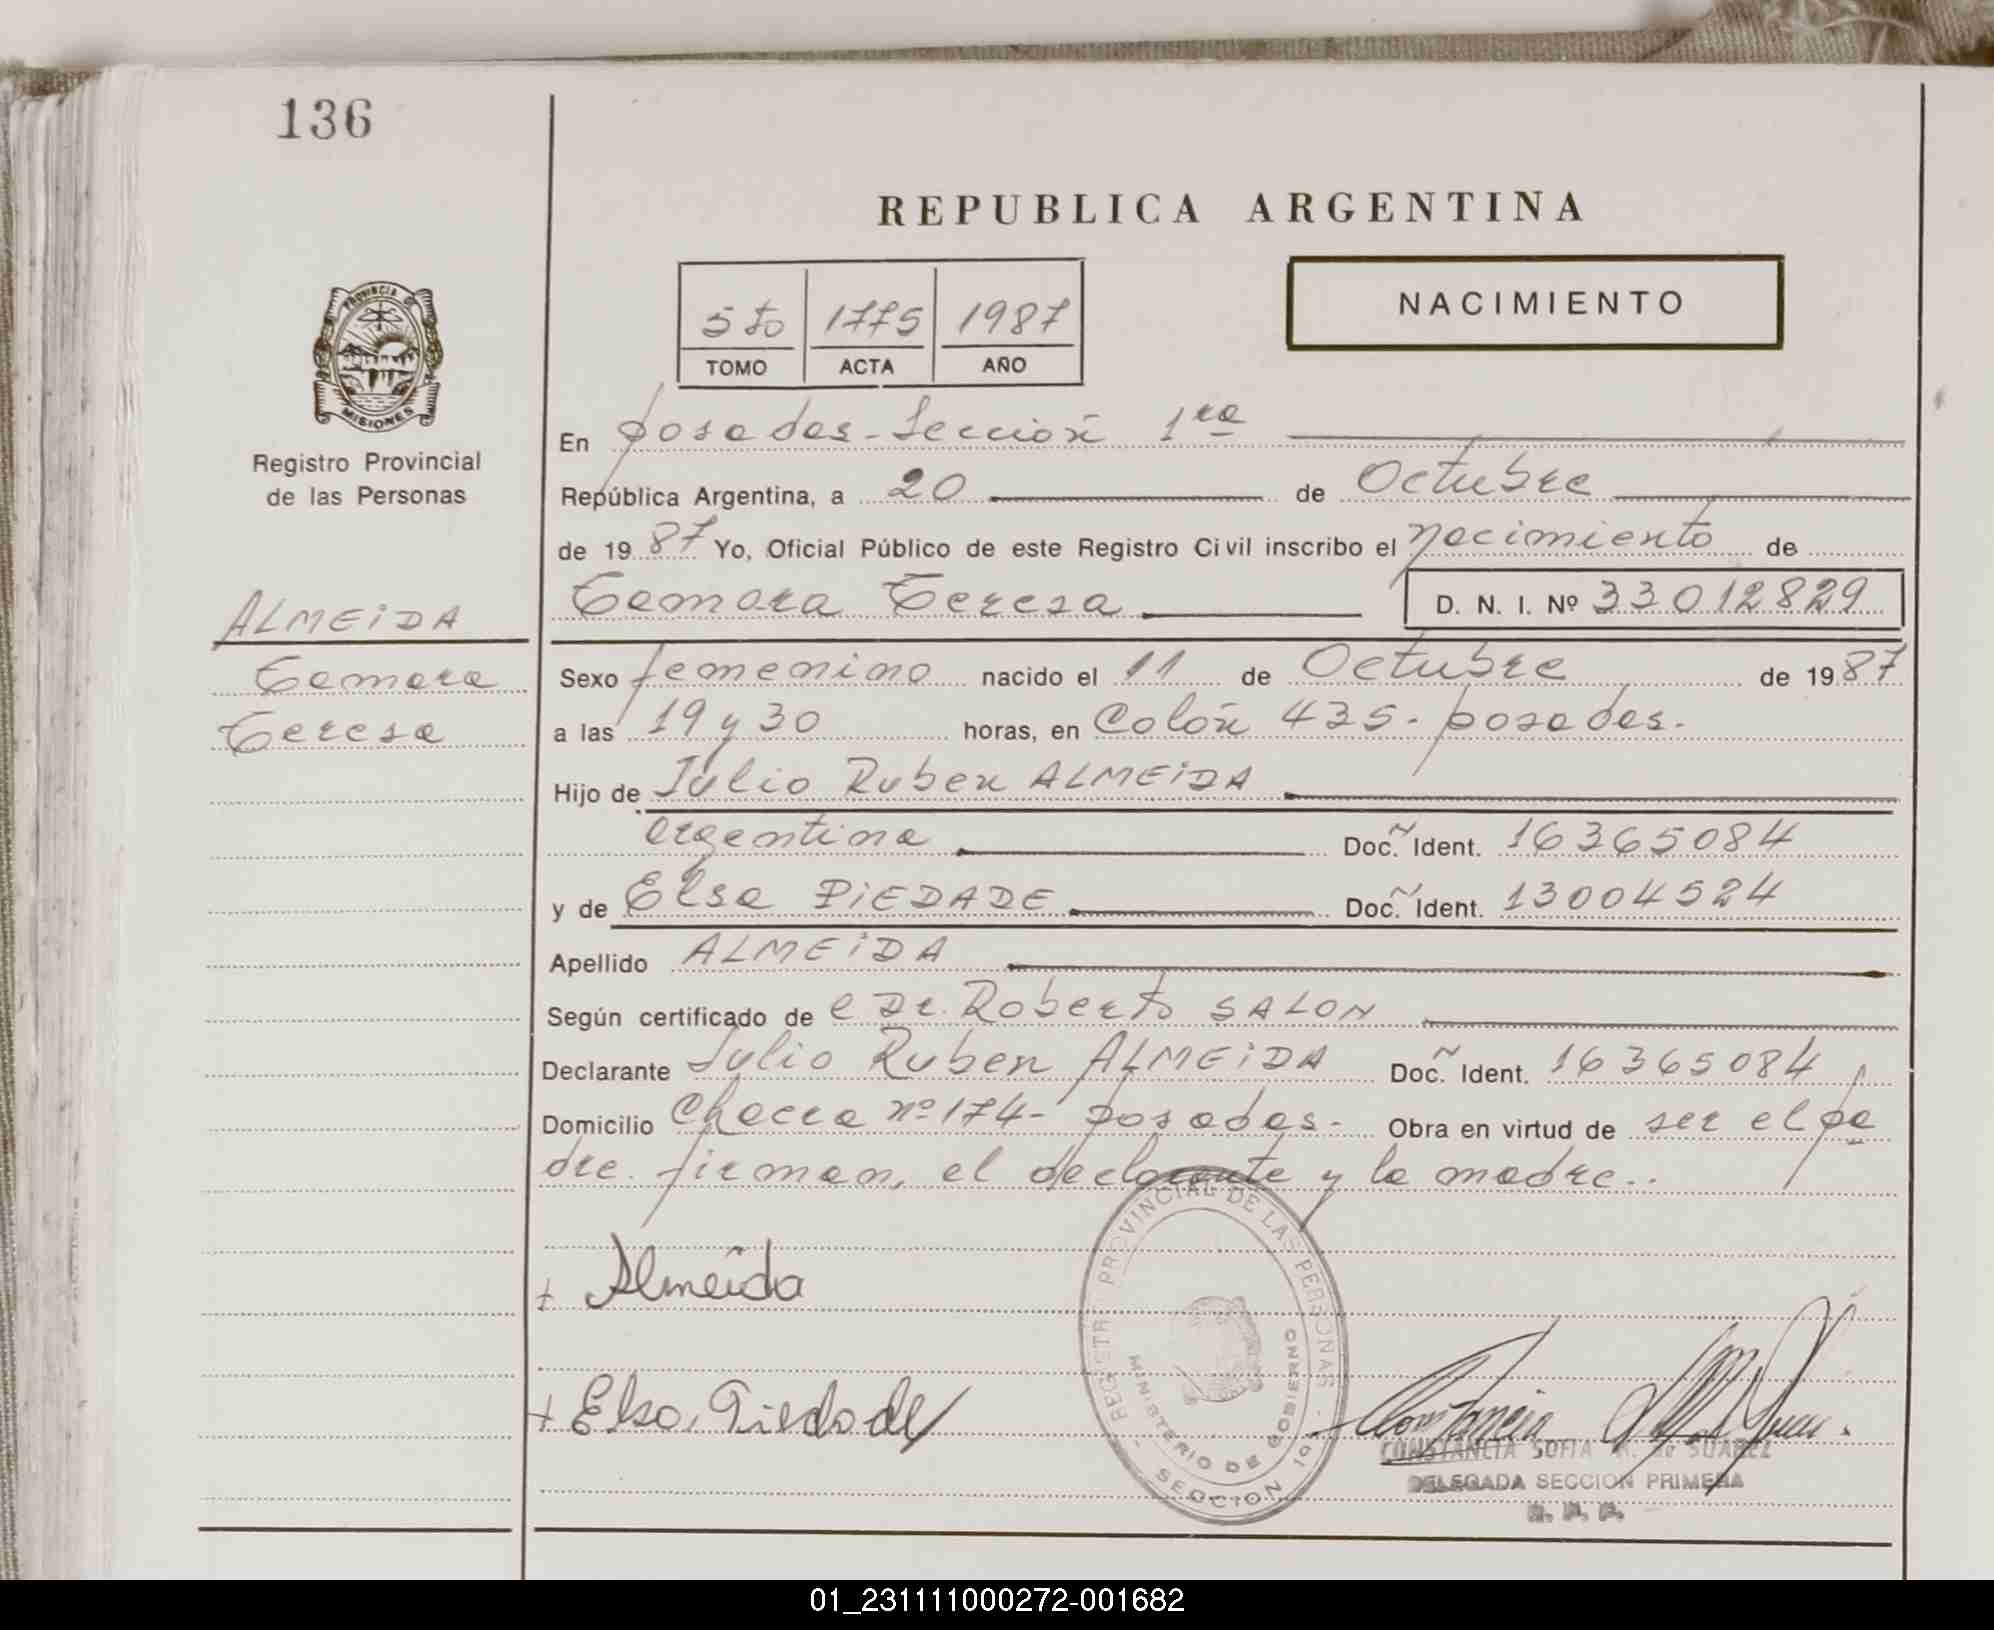 136
REPUBLICA ARGENTINA
5to 1775 1987
TOMO ACTA AÑO
NACIMIENTO
PROVINCIA DE
MISIONES
Registro Provincial
de las Personas
En posadas - Sección 1ra
República Argentina, a 20 de Octubre
de 1987 Yo, Oficial Público de este Registro Civil inscribo el nacimiento de
Tamara Teresa D. N. I. Nº 33012829
ALMEiDA
Tamara
Teresa
Sexo femenino nacido el 11 de Octubre de 1987
a las 19 y 30 horas, en Colón 435 - posadas.
Hijo de Julio Ruben ALMEiDA
argentina Doc. Ident. 16365084
y de Elsa PiEDADE Doc. Ident. 13004524
Apellido ALMEiDA
Según certificado de el Dr. Roberto SALON
Declarante Julio Ruben ALMEiDA Doc. Ident. 16365084
Domicilio Chacra nº 174 - posadas - Obra en virtud de ser el pa
dre. firman, el declarante y la madre..
REGISTRO PROVINCIAL DE LAS PERSONAS
MINISTERIO DE GOBIERNO
SECCION 1º
+ Almeida
+ Elsa, Piedade
CONSTANCIA SOFIA de SUAREZ
DELEGADA SECCION PRIMERA
R. P. P.
01_231111000272-001682